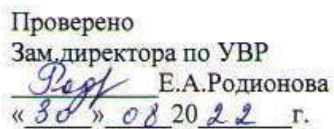 Проверено
Зам.директора по УВР
Е.А.Родионова
«30» 08 2022 г.